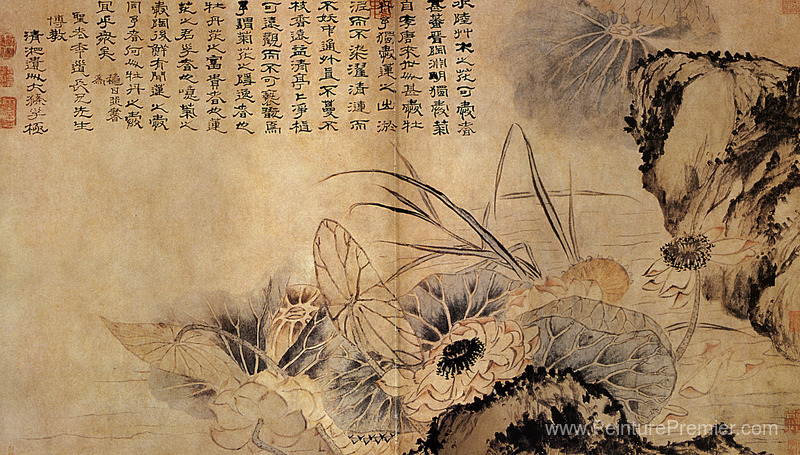 水陸艸木之花可愛者
甚蕃晉陶淵明獨愛菊
自李唐來世人甚愛牡
丹予獨愛蓮之出淤
泥而不染濯清漣而
不妖中通外直不蔓不
枝香遠益清亭亭淨植
可遠觀而不可褻翫焉
予謂菊花之隱逸者也
牡丹花之富貴者也蓮
花之君子者也噫菊之
愛陶後鮮有聞蓮之愛
同予者何人牡丹之愛
宜乎衆矣
長兄先生
博教
清湘遺人大滌子極
www.PeinturePremier.com